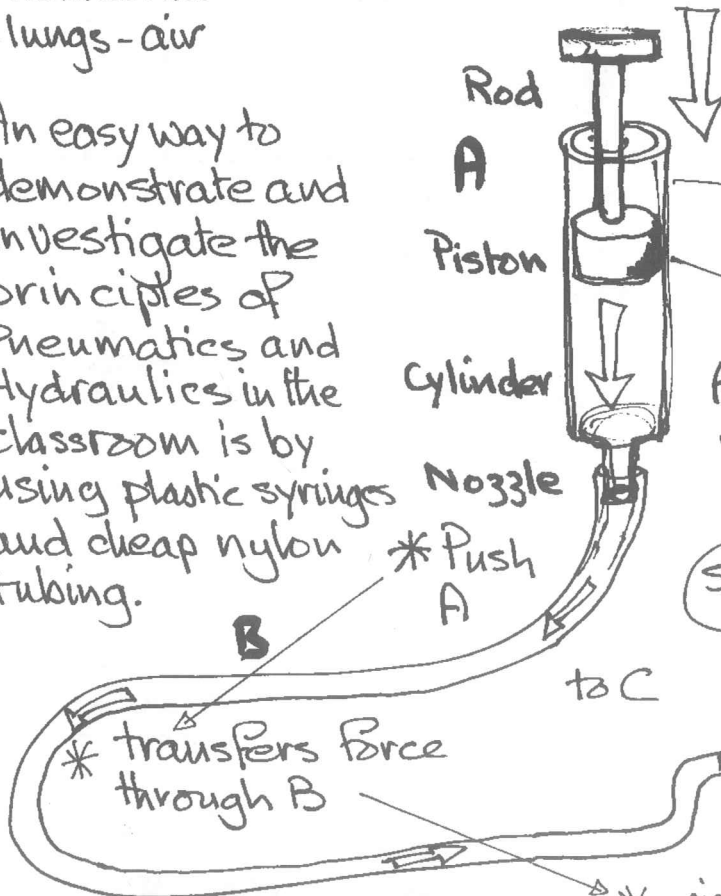 lungs-air
An easy way to
demonstrate and
investigate the
principles of
Pneumatics and
Hydraulics in the
classroom is by
using plastic syringes
and cheap nylon
tubing.
Rod
A
Piston
Cylinder
Nozzle
* Push
A
B
to C
* transfers force
through B